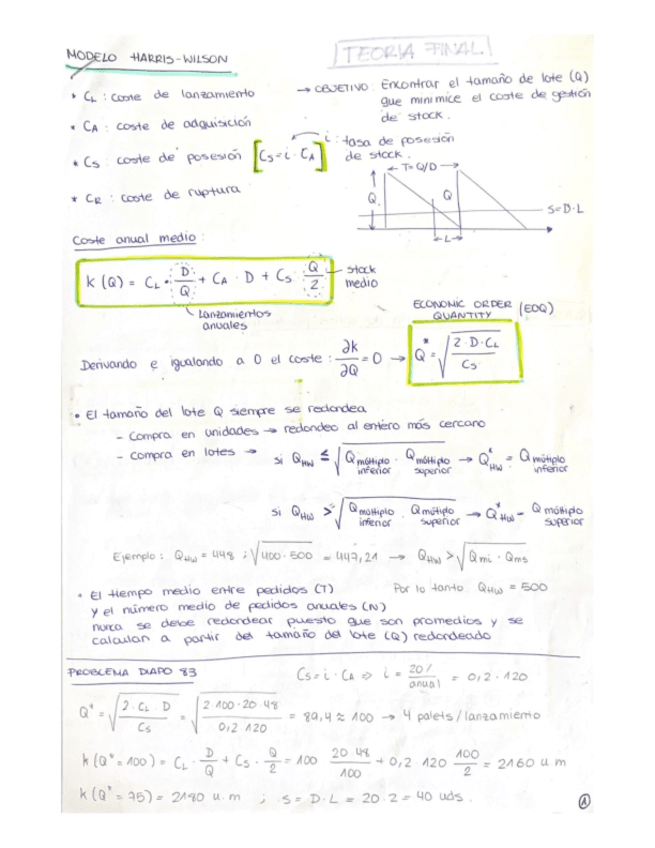 MODELO HARRIS-WILSON
TEORIA FINAL.
* CL : coste de lanzamiento
* CA : coste de adquisición
* Cs : coste de posesión [Cs = i · CA]
* CR : coste de ruptura
→ OBJETIVO: Encontrar el tamaño de lote (Q)
que minimice el coste de gestión
de stock.
i : tasa de posesión
de stock.
← T=Q/D →
Q
Q
S=D·L
←L→
Coste anual medio:
k (Q) = CL · D/Q + CA · D + Cs Q/2
stock
medio
Lanzamientos
anuales
ECONOMIC ORDER
QUANTITY (EOQ)
Derivando e igualando a 0 el coste : ∂k/∂Q = 0 → Q* = √(2·D·CL/Cs)
• El tamaño del lote Q siempre se redondea
- Compra en unidades → redondeo al entero más cercano
- compra en lotes → si QHW ≤ √(Qmúltiplo inferior · Qmúltiplo superior) → Q*HW = Qmúltiplo inferior
si QHW > √(Qmúltiplo inferior · Qmúltiplo superior) → Q*HW = Qmúltiplo superior
Ejemplo : QHW = 448 ; √(400·500) = 447,21 → QHW > √(Qmi · Qms)
• El tiempo medio entre pedidos (T)
Por lo tanto QHW = 500
y el número medio de pedidos anuales (N)
nunca se debe redondear puesto que son promedios y se
calculan a partir del tamaño del lote (Q) redondeado
PROBLEMA DIAPO 83
Cs = i · CA ⇒ i = 20%/anual = 0,2 · 120
Q* = √(2·CL·D/Cs) = √(2·100·20·48/0,2·120) = 89,4 ≈ 100 → 4 palets/lanzamiento
k (Q* = 100) = CL · D/Q + Cs · Q/2 = 100 20·48/100 + 0,2·120 100/2 = 2160 u.m
k (Q* = 75) = 2180 u.m ; s = D·L = 20·2 = 40 uds.
1